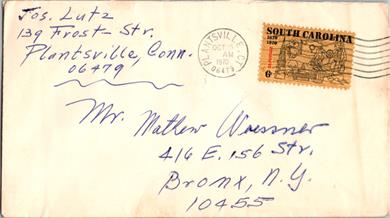 Jos. Lutz
139 Frost-Str.
Plantsville, Conn.
06479
PLANTSVILLE, CT.
OCT
AM
1970
06479
SOUTH CAROLINA
1670
1970
6¢
Mr. Mathew Woessner
416 E. 156 Str.
Bronx, N.Y.
10455